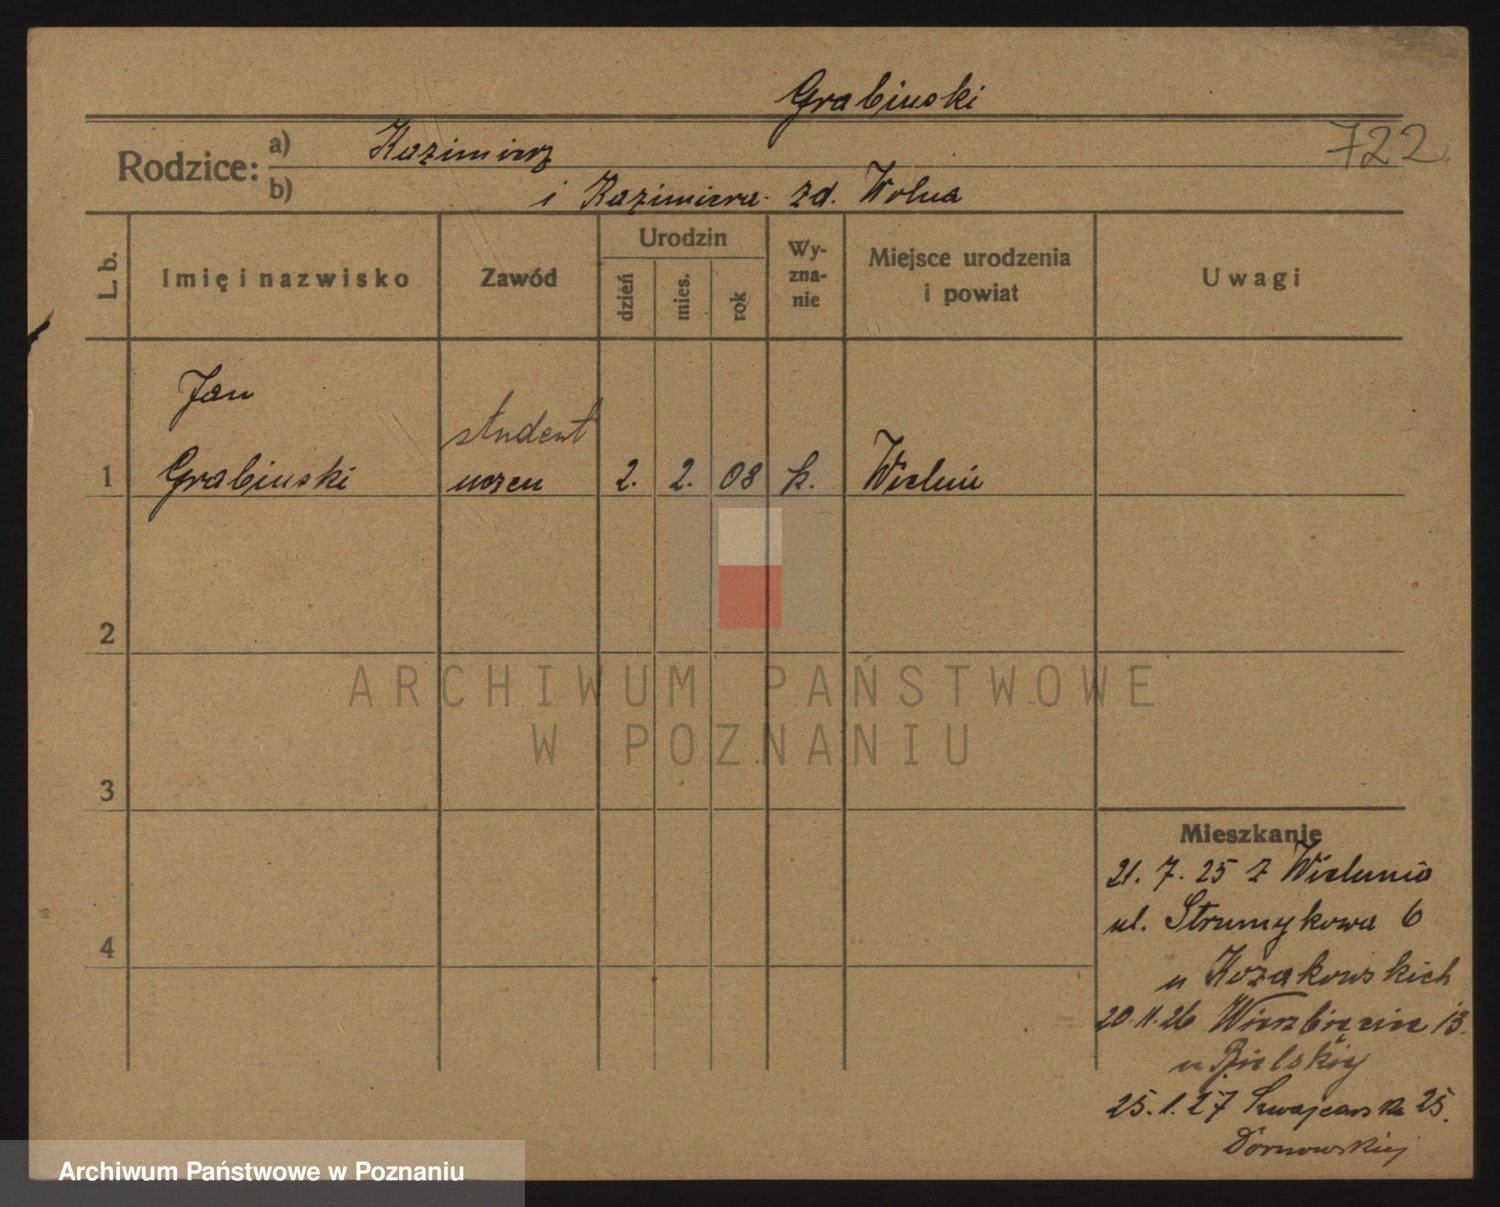 Grabinski
722
Rodzice: a) Kazimierz
b) i Kazimiera zd. Wolna
L. b.
Imię i nazwisko
Zawód
Urodzin
dzień
mies.
rok
Wy-
zna-
nie
Miejsce urodzenia
i powiat
Uwagi
Jan
student
1 Grabinski uczeń 2. 2. 08 k. Wieluń
2
3
4
ARCHIWUM PAŃSTWOWE
W POZNANIU
Mieszkanie
21. 7. 25 z Wielunia
ul. Strumykowa 6
u Kozakowskich
20.11.26 Wierzbięcice 13.
u Bielskiej
25.1.27 Szwajcarska 25.
Dornowskiej
Archiwum Państwowe w Poznaniu